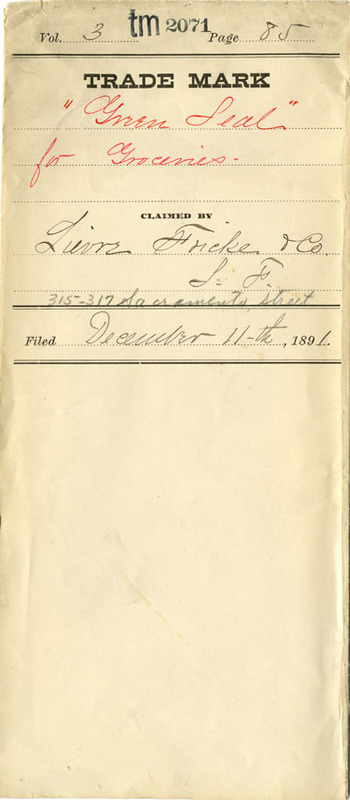 Vol. 3 tm 2071 Page 85
TRADE MARK
"Green Seal"
for Groceries.
CLAIMED BY
Fricke & Co.
S. F.
315-317 Sacramento Street
Filed December 11-th, 1891.